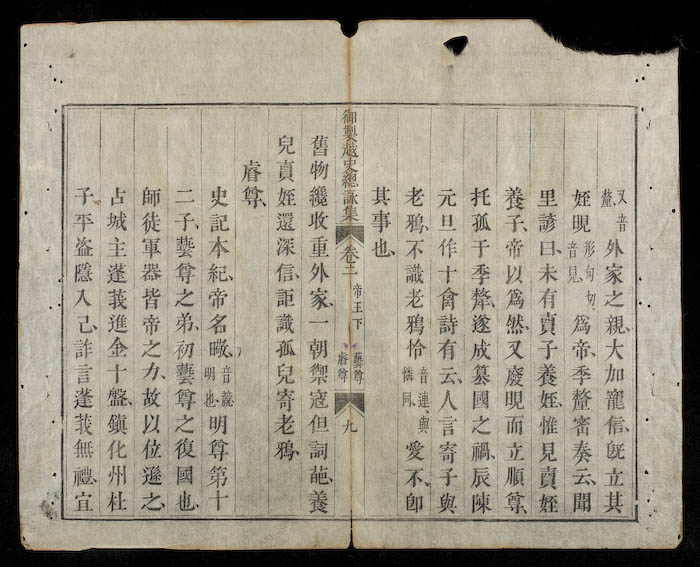 又音釐外家之親、大加寵信、旣立其
姪晛形甸切、音見、爲帝、季犛密奏云、聞
里諺曰、未有賣子養姪、惟見賣姪
養子、帝以爲然、又廢晛而立順尊、
托孤于季犛、遂成簒國之禍、辰陳
元旦作十禽詩有云、人言寄子與
老鴉、不識老鴉怜音連、與憐同、愛不、卽
其事也、
御製越史總詠集
卷二
帝王下
藝尊
睿尊
九
舊物纔收重外家、一朝禦寇但詞葩、養
兒眞姪還深信、詎識孤兒寄老鴉、
睿尊、
史記本紀、帝名曔、音竸、明也、明尊第十
二子、藝尊之弟、初藝尊之復國也、
師徒軍器皆帝之力、故以位遜之、
占城主蓬莪進金十盤、鎭化州杜
子平盗隱入己、詐言蓬莪無禮、宜